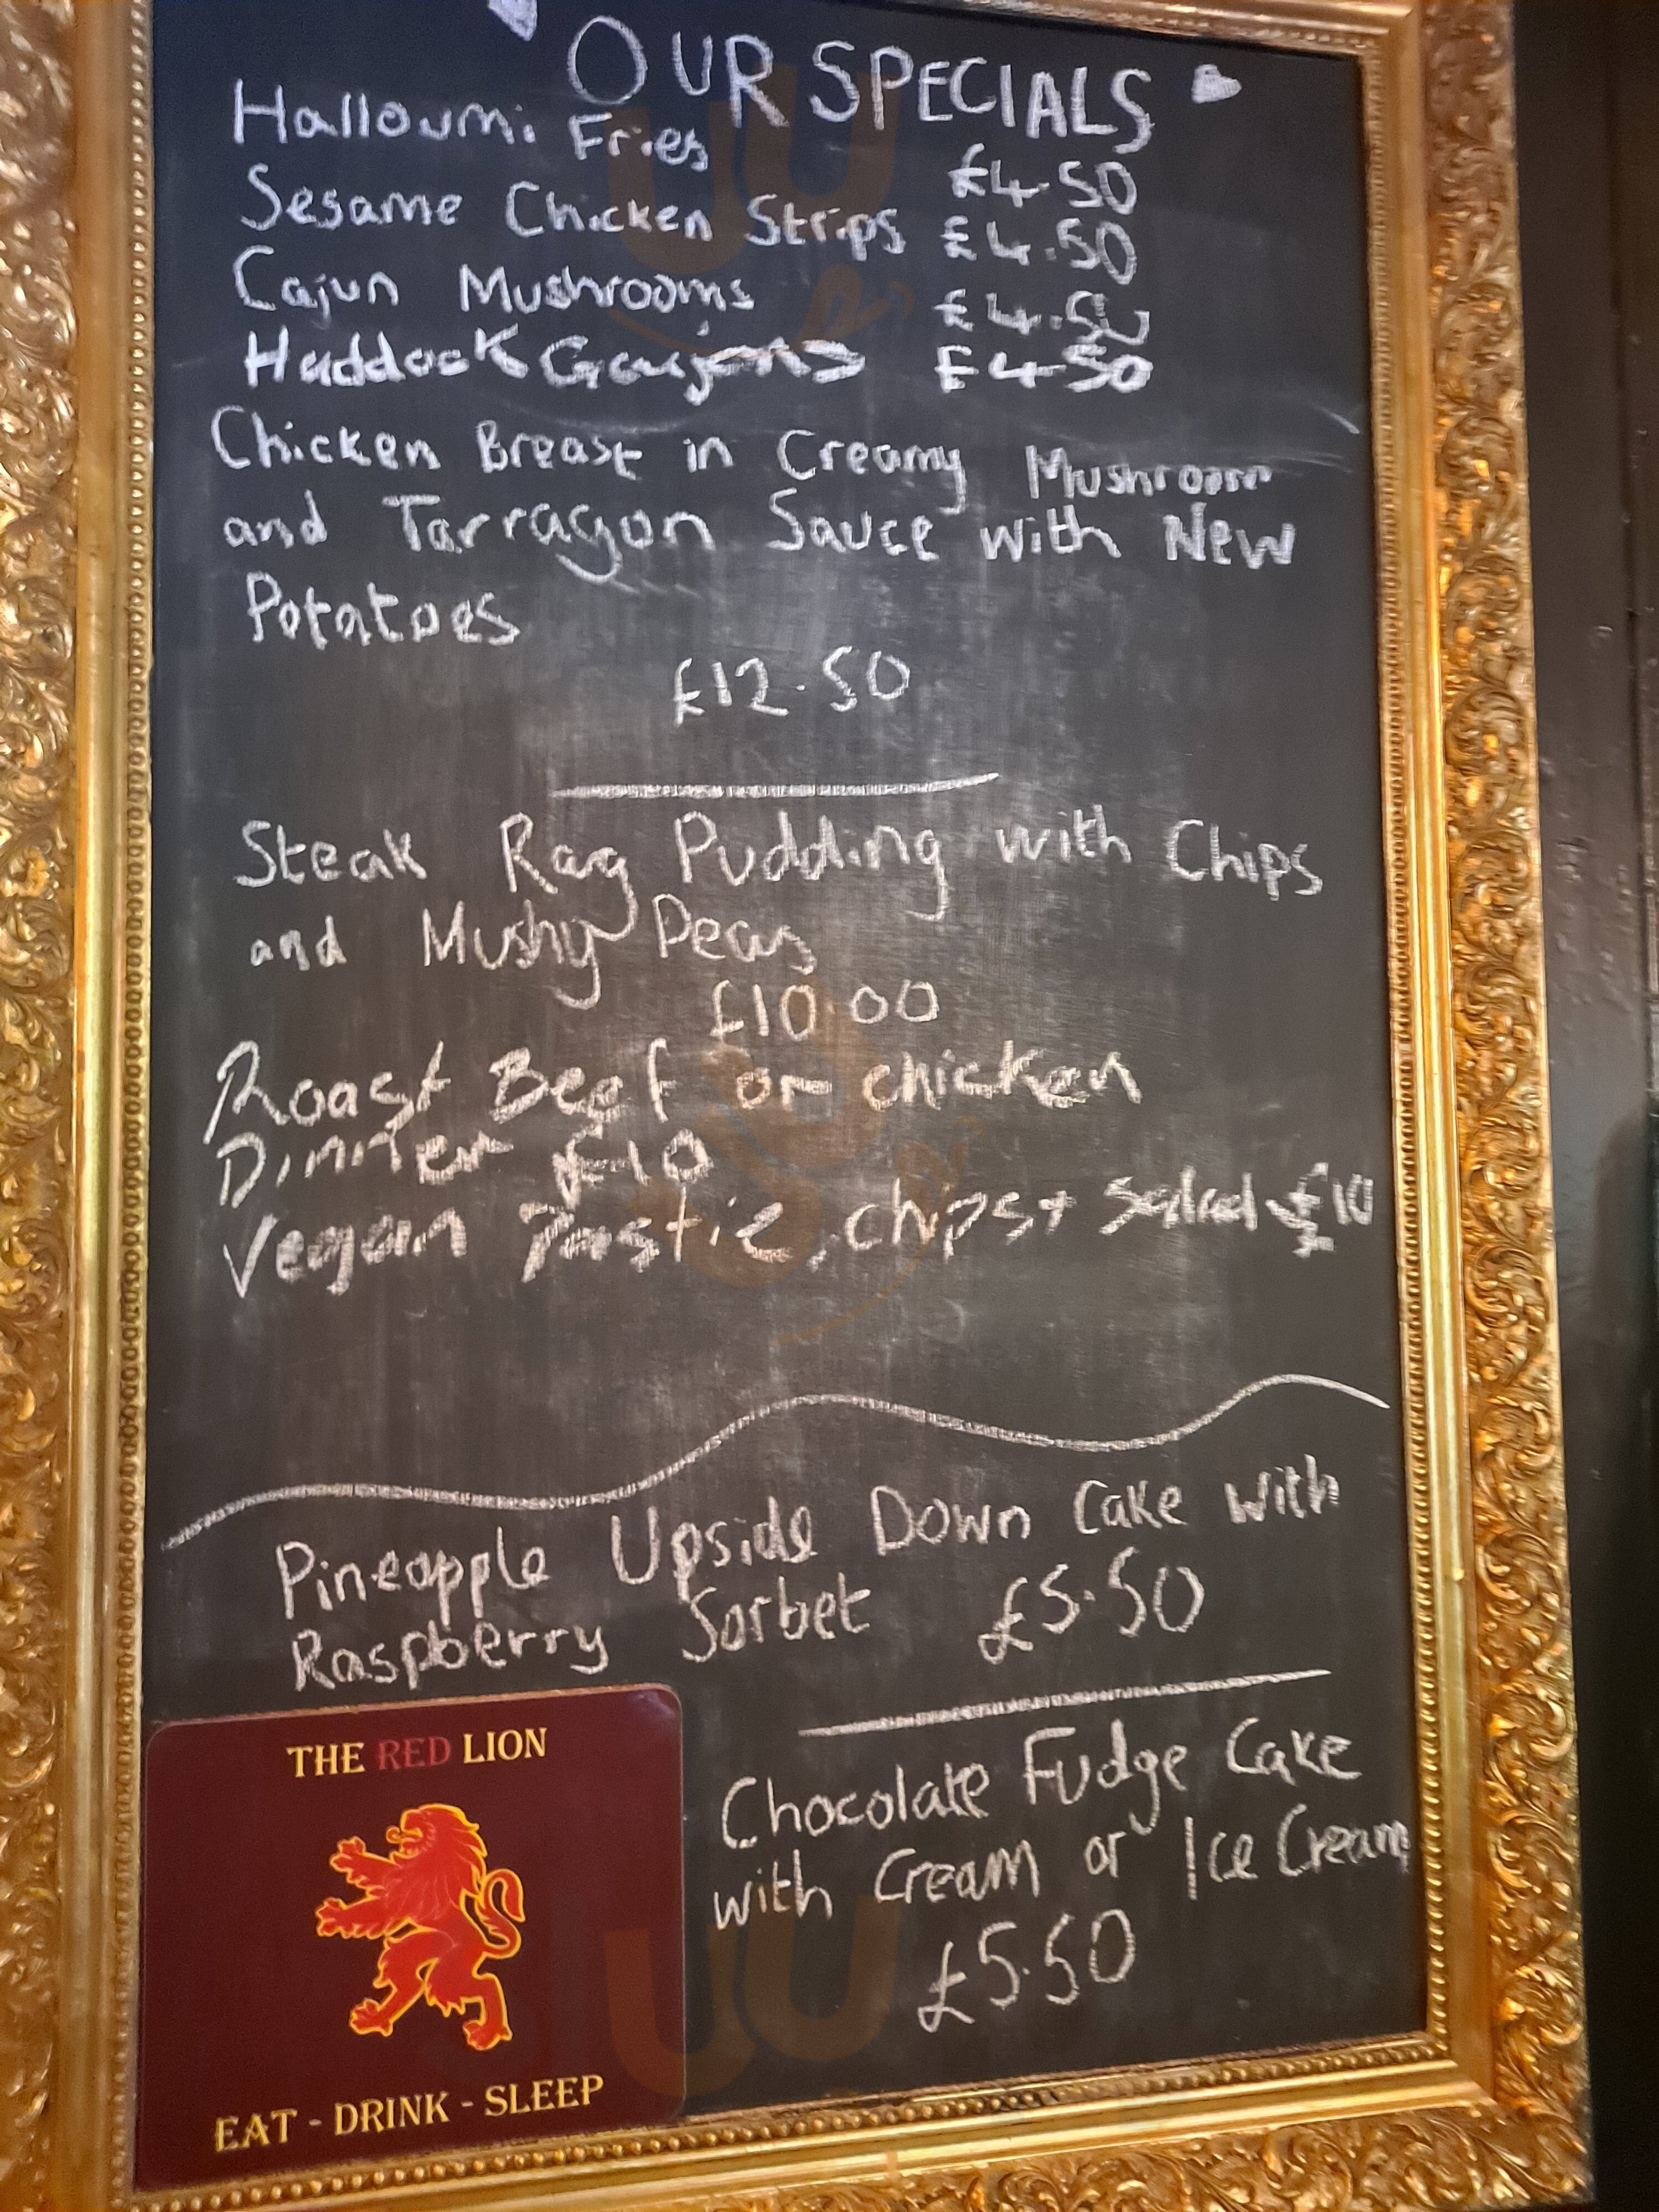 OUR SPECIALS
Halloumi Fries £4.50
Sesame Chicken Strips £4.50
Cajun Mushrooms £4.50
Haddock Goujons £4.50
Chicken Breast in Creamy Mushroom
and Tarragon Sauce with New
Potatoes
£12.50
Steak Rag Pudding with Chips
and Mushy Peas
£10.00
Roast Beef or chicken
Dinner £10
Vegan Pastie, chips + Salad £10
Pineapple Upside Down Cake with
Raspberry Sorbet £5.50
Chocolate Fudge Cake
with Cream or Ice Cream
£5.50
THE RED LION
EAT - DRINK - SLEEP